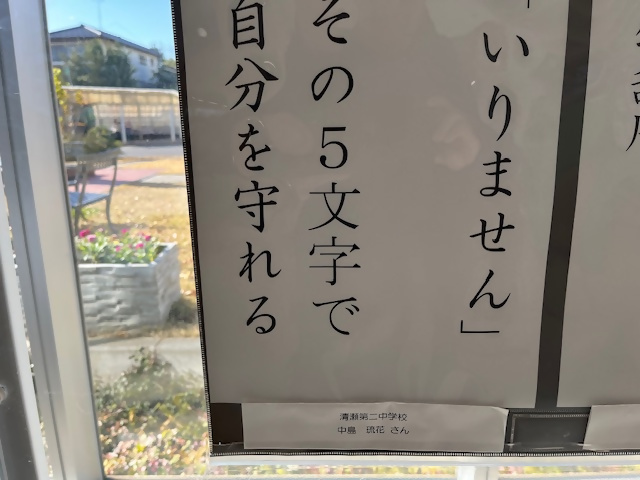 「いりません」
その5文字で
自分を守れる
清瀬第二中学校
中島 琉花 さん